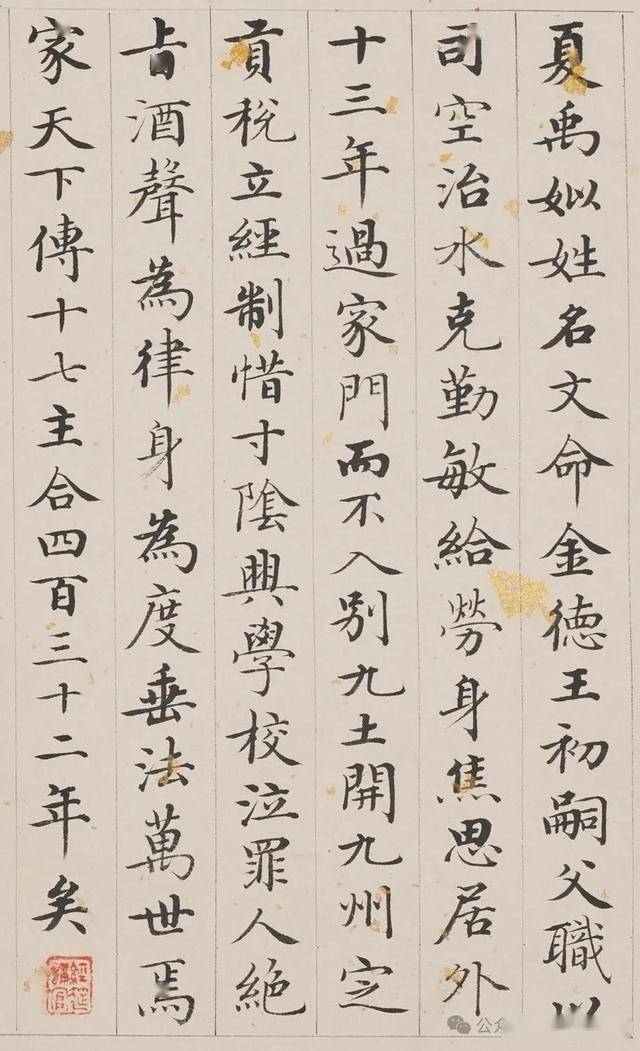 夏禹姒姓名文命金德王初嗣父職以
司空治水克勤敏給勞身焦思居外
十三年過家門而不入別九土開九州定
貢稅立經制惜寸陰興學校泣罪人絕
旨酒聲為律身為度垂法萬世焉
家天下傳十七主合四百三十二年矣
公众